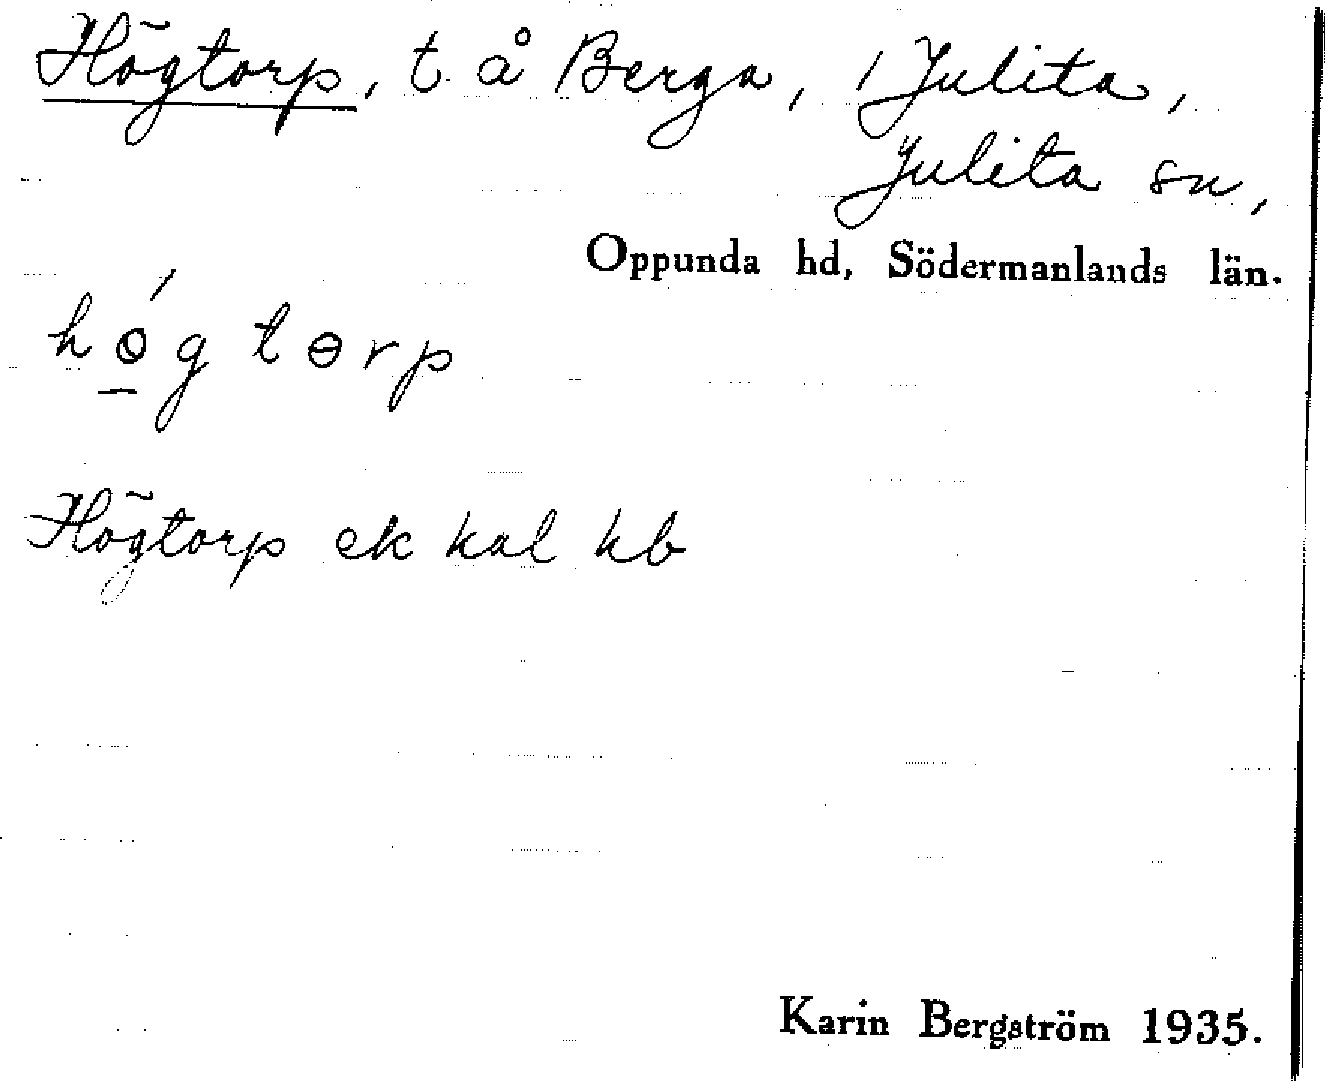 Högtorp, t. å Berga, Julita,
Julita sn,
Oppunda hd, Södermanlands län.
hɵ́g tɵrp
Högtorp ek kal hb
Karin Bergström 1935.